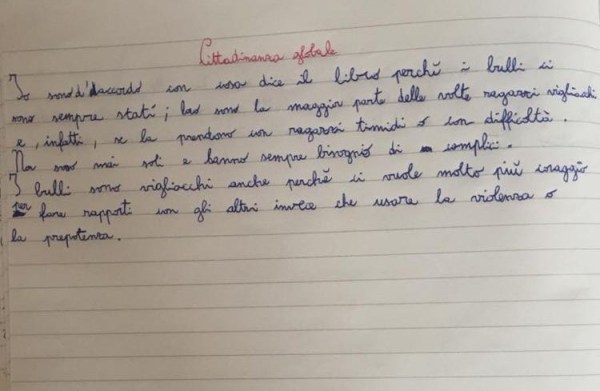 Cittadinanza globale
Io sono d'daccordo con cosa dice il libro perchè i bulli ci
sono sempre stati; loro sono la maggior parte delle volte ragazzi vigliacchi
e, infatti, se la prendono con ragazzi timidi o con difficoltà.
Non sono mai soli e hanno sempre bisognio di complici.
I bulli sono vigliacchi anche perchè ci vuole molto più coraggio
per fare rapporti con gli altri invece che usare la violenza o
la prepotenza.